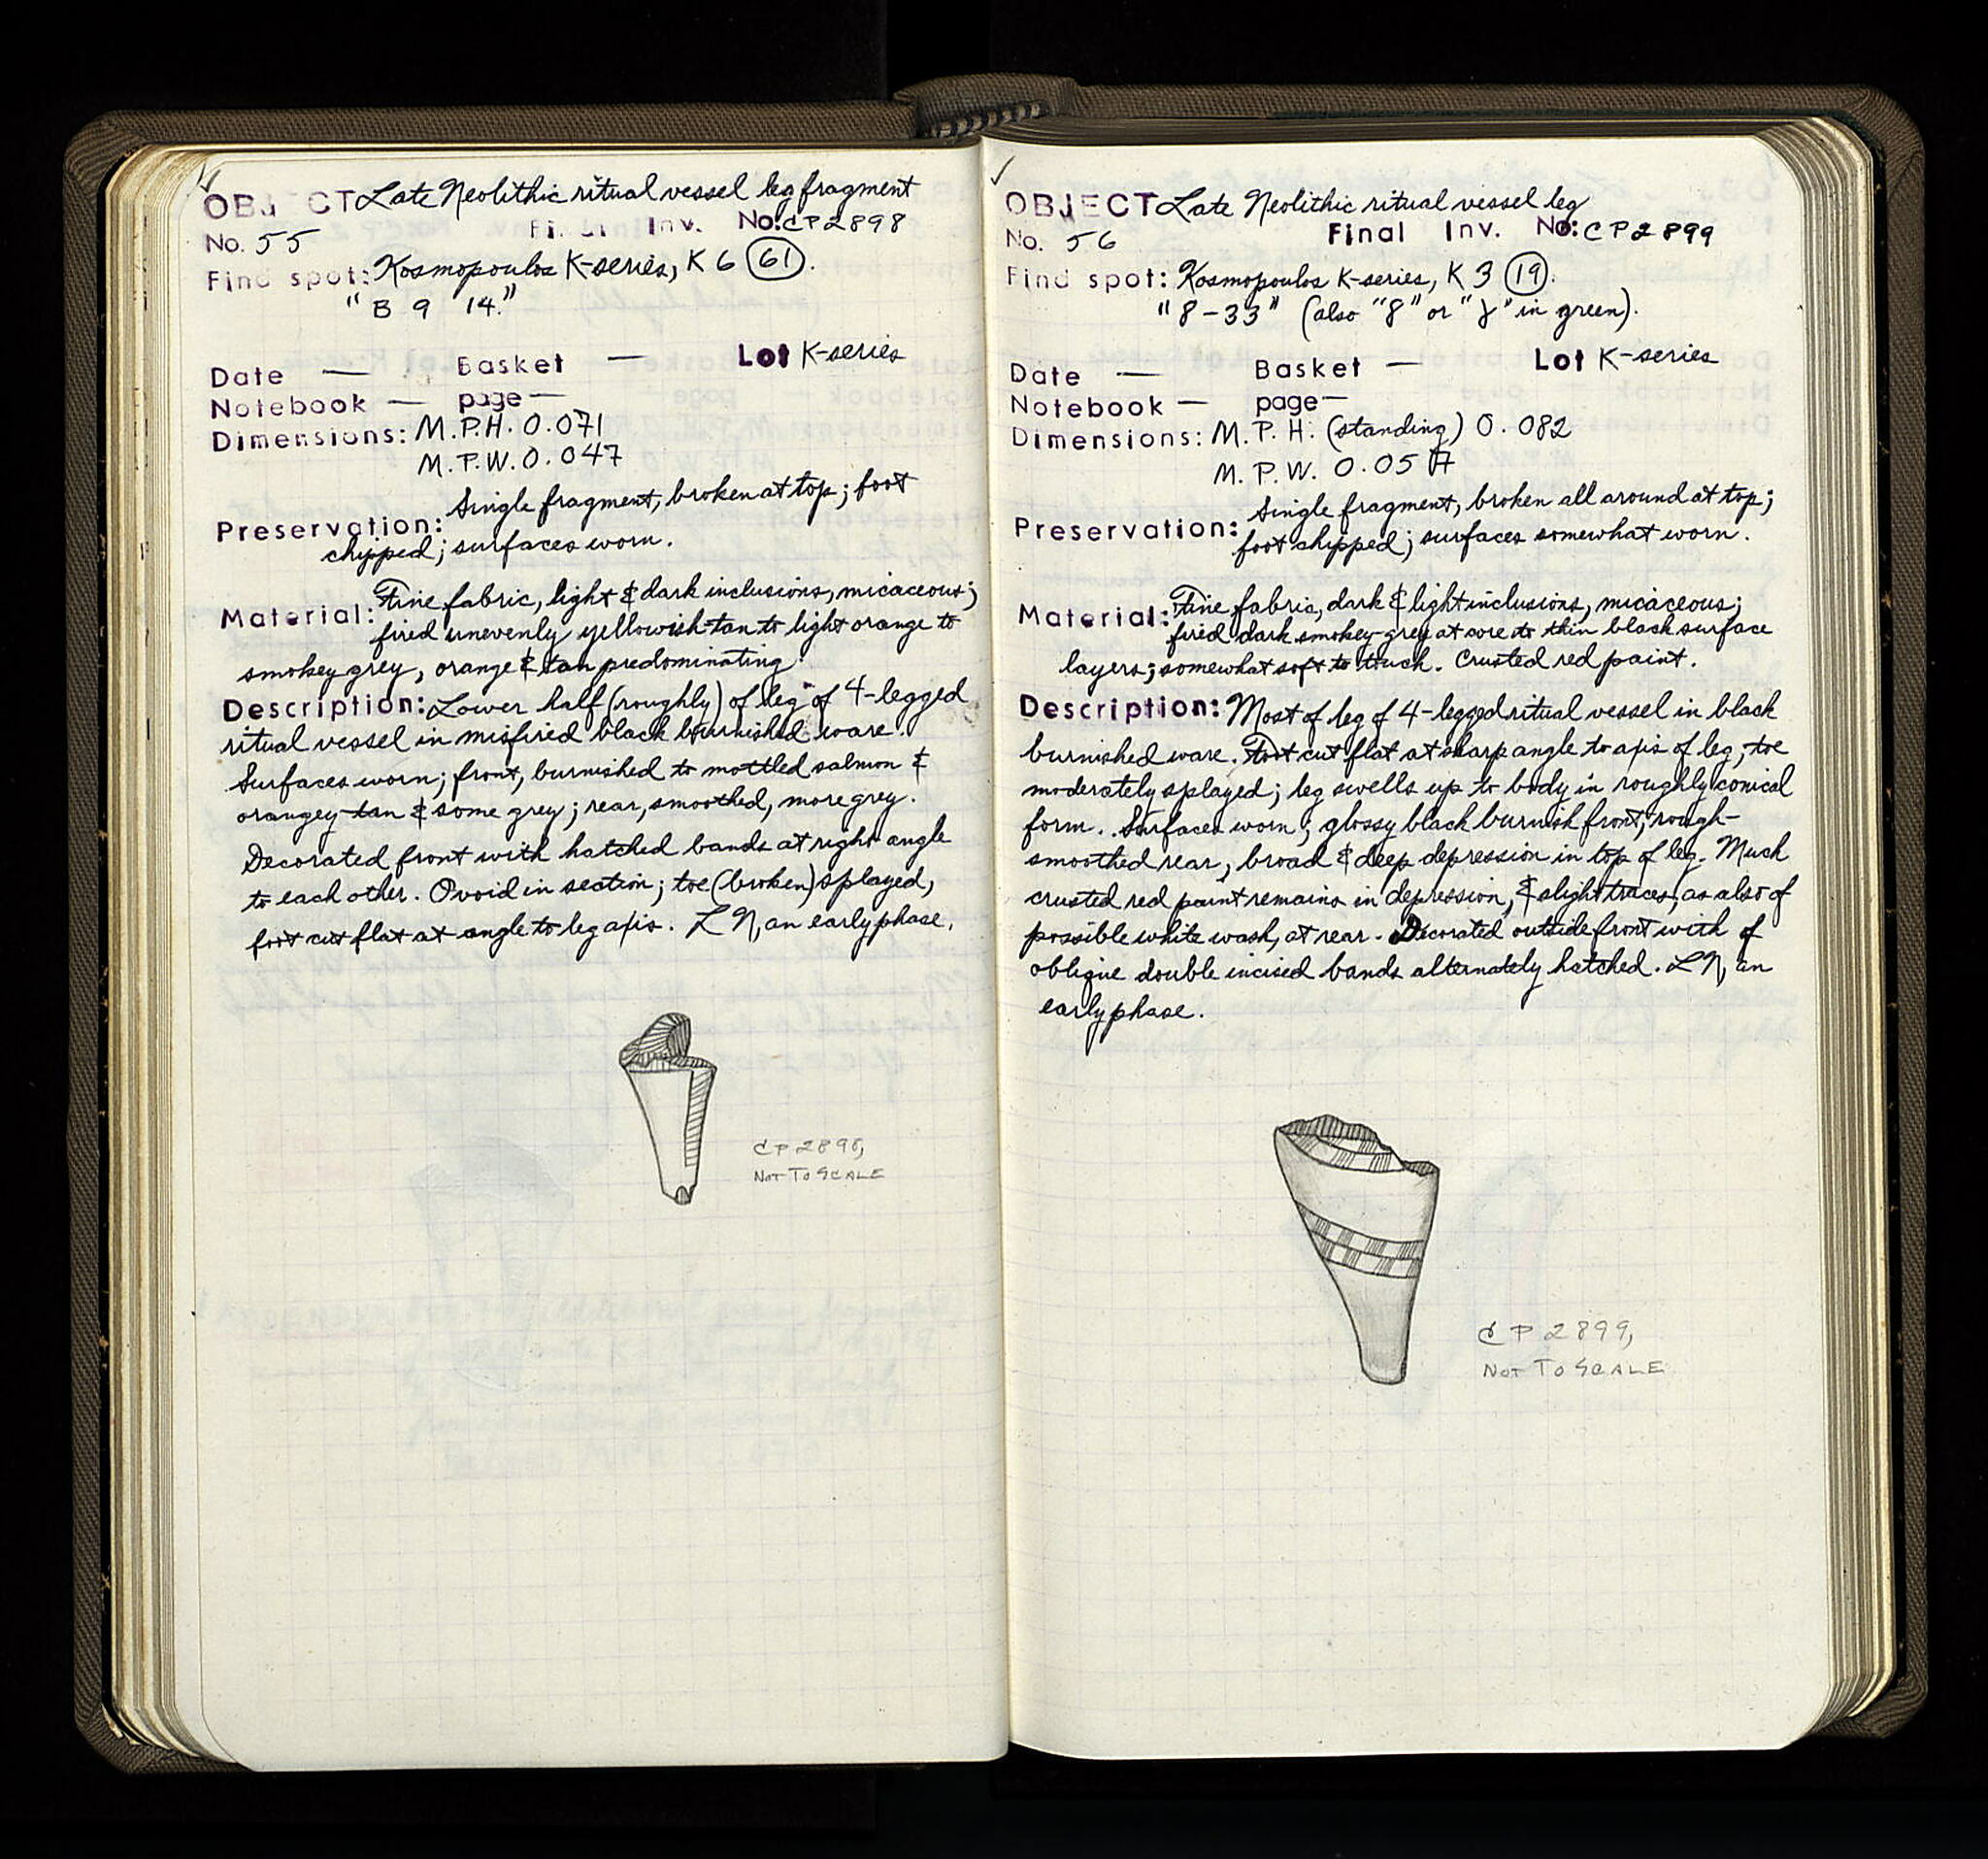 ✓
OBJ CT Late Neolithic ritual vessel leg fragment
No. 55 Final Inv. No: CP2898
Find spot: Kosmopoulos K-series, K 6 (61).
"B 9 14."
Date — Basket — Lot K-series
Notebook — page —
Dimensions: M.P.H. 0.071
M.P.W. 0.047
Single fragment, broken at top; foot
Preservation:
chipped; surfaces worn.
Material: Fine fabric, light & dark inclusions, micaceous;
fired unevenly yellowish-tan to light orange to
smokey grey, orange & tan predominating.
Description: Lower half (roughly) of leg of 4-legged
ritual vessel in misfired black burnished ware.
Surfaces worn; front, burnished to mottled salmon &
orangey-tan & some grey; rear, smoothed, more grey.
Decorated front with hatched bands at right angle
to each other. Ovoid in section; toe (broken) splayed,
foot cut flat at angle to leg axis. LN, an early phase.
CP 2898,
NOT TO SCALE
✓
OBJECT Late Neolithic ritual vessel leg
No. 56 Final Inv. No: CP2899
Find spot: Kosmopoulos K-series, K 3 (19).
"8-33" (also "8" or "}" in green).
Date — Basket — Lot K-series
Notebook — page —
Dimensions: M.P.H. (standing) 0.082
M.P.W. 0.057
Single fragment, broken all around at top;
Preservation:
foot chipped; surfaces somewhat worn.
Material: Fine fabric, dark & light inclusions, micaceous;
fired dark smokey-grey at core to thin black surface
layers; somewhat soft to touch. Crusted red paint.
Description: Most of leg of 4-legged ritual vessel in black
burnished ware. Foot cut flat at sharp angle to axis of leg; toe
moderately splayed; leg swells up to body in roughly conical
form. Surfaces worn; glossy black burnish front, rough-
smoothed rear, broad & deep depression in top of leg. Much
crusted red paint remains in depression, & slight traces, as also of
possible white wash, at rear. Decorated outside front with of
oblique double incised bands alternately hatched. LN, an
early phase.
CP 2899,
NOT TO SCALE